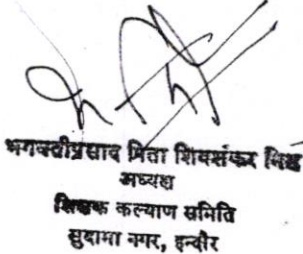 भगवतीप्रसाद पिता शिवशंकर मिश्र
अध्यक्ष
शिक्षक कल्याण समिति
सुदामा नगर, इन्दौर